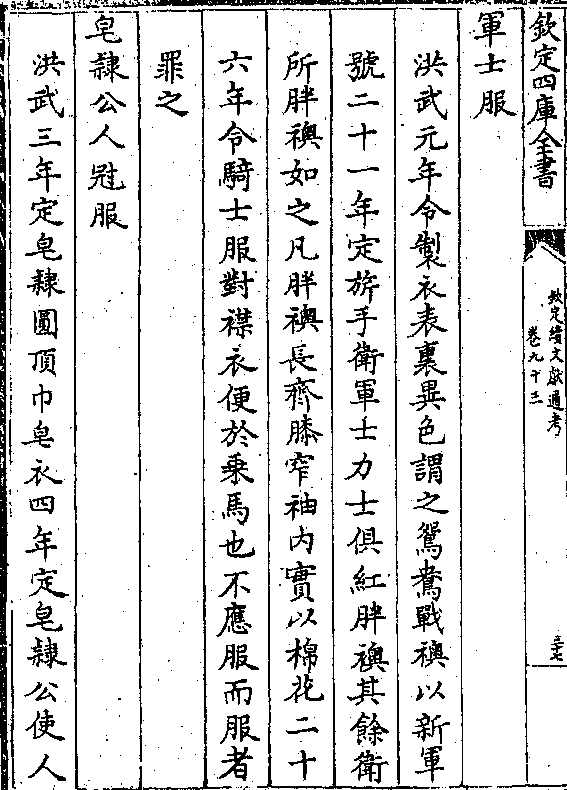 欽定四庫全書
欽定續文獻通考
卷九十三
三七
軍士服
洪武元年令製衣表裏異色謂之鴛鴦戰襖以新軍
號二十一年定旂手衛軍士力士俱紅胖襖其餘衛
所胖襖如之凡胖襖長齊膝窄袖内實以棉花二十
六年令騎士服對襟衣便於乗馬也不應服而服者
罪之
皂隷公人冠服
洪武三年定皂隷圓頂巾皂衣四年定皂隷公使人